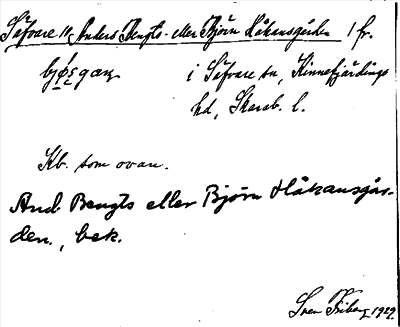 Säfvare 11, Anders Bengts- eller Björn Håkansgården 1 fr.
i Säfvare sn, Kinnefjärdings
hd, Skarab. l.
Kb. som ovan.
And Bengts eller Björn Håkansgår-
den., bek.
Sven 1929.